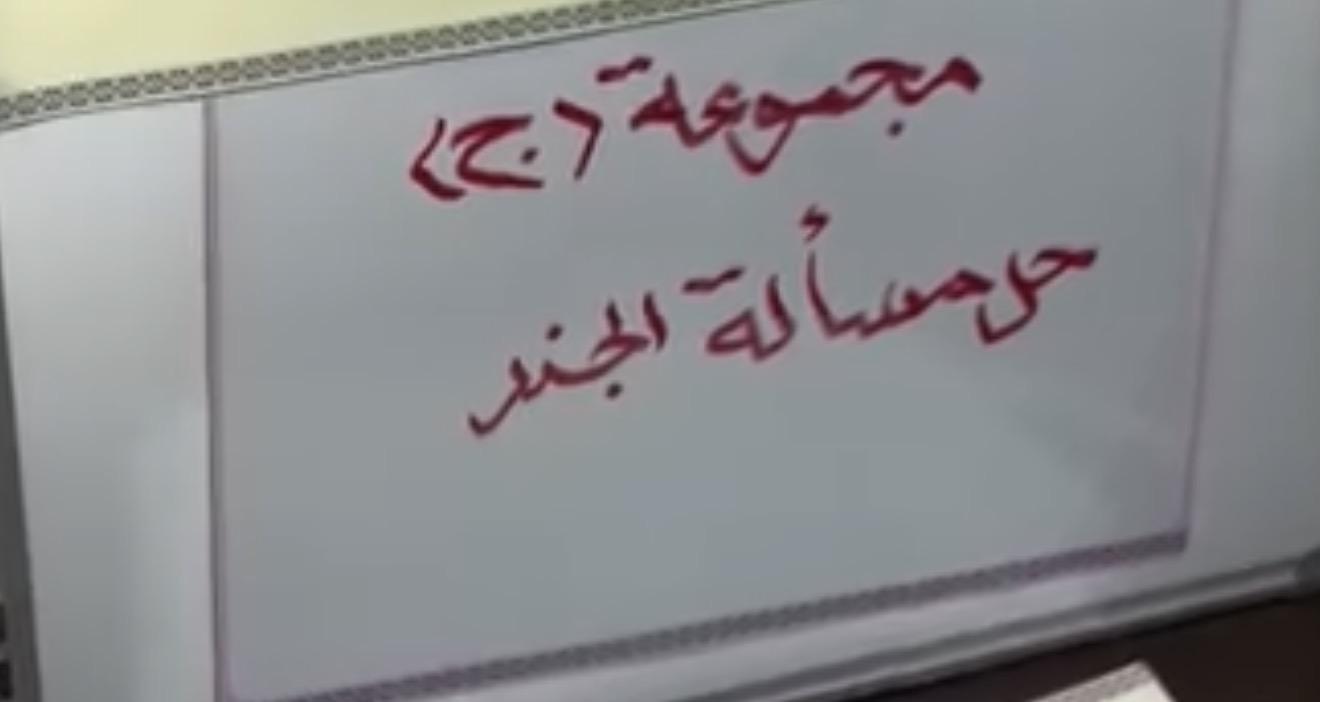 مجموعة (ج)
حل مسألة الجذر